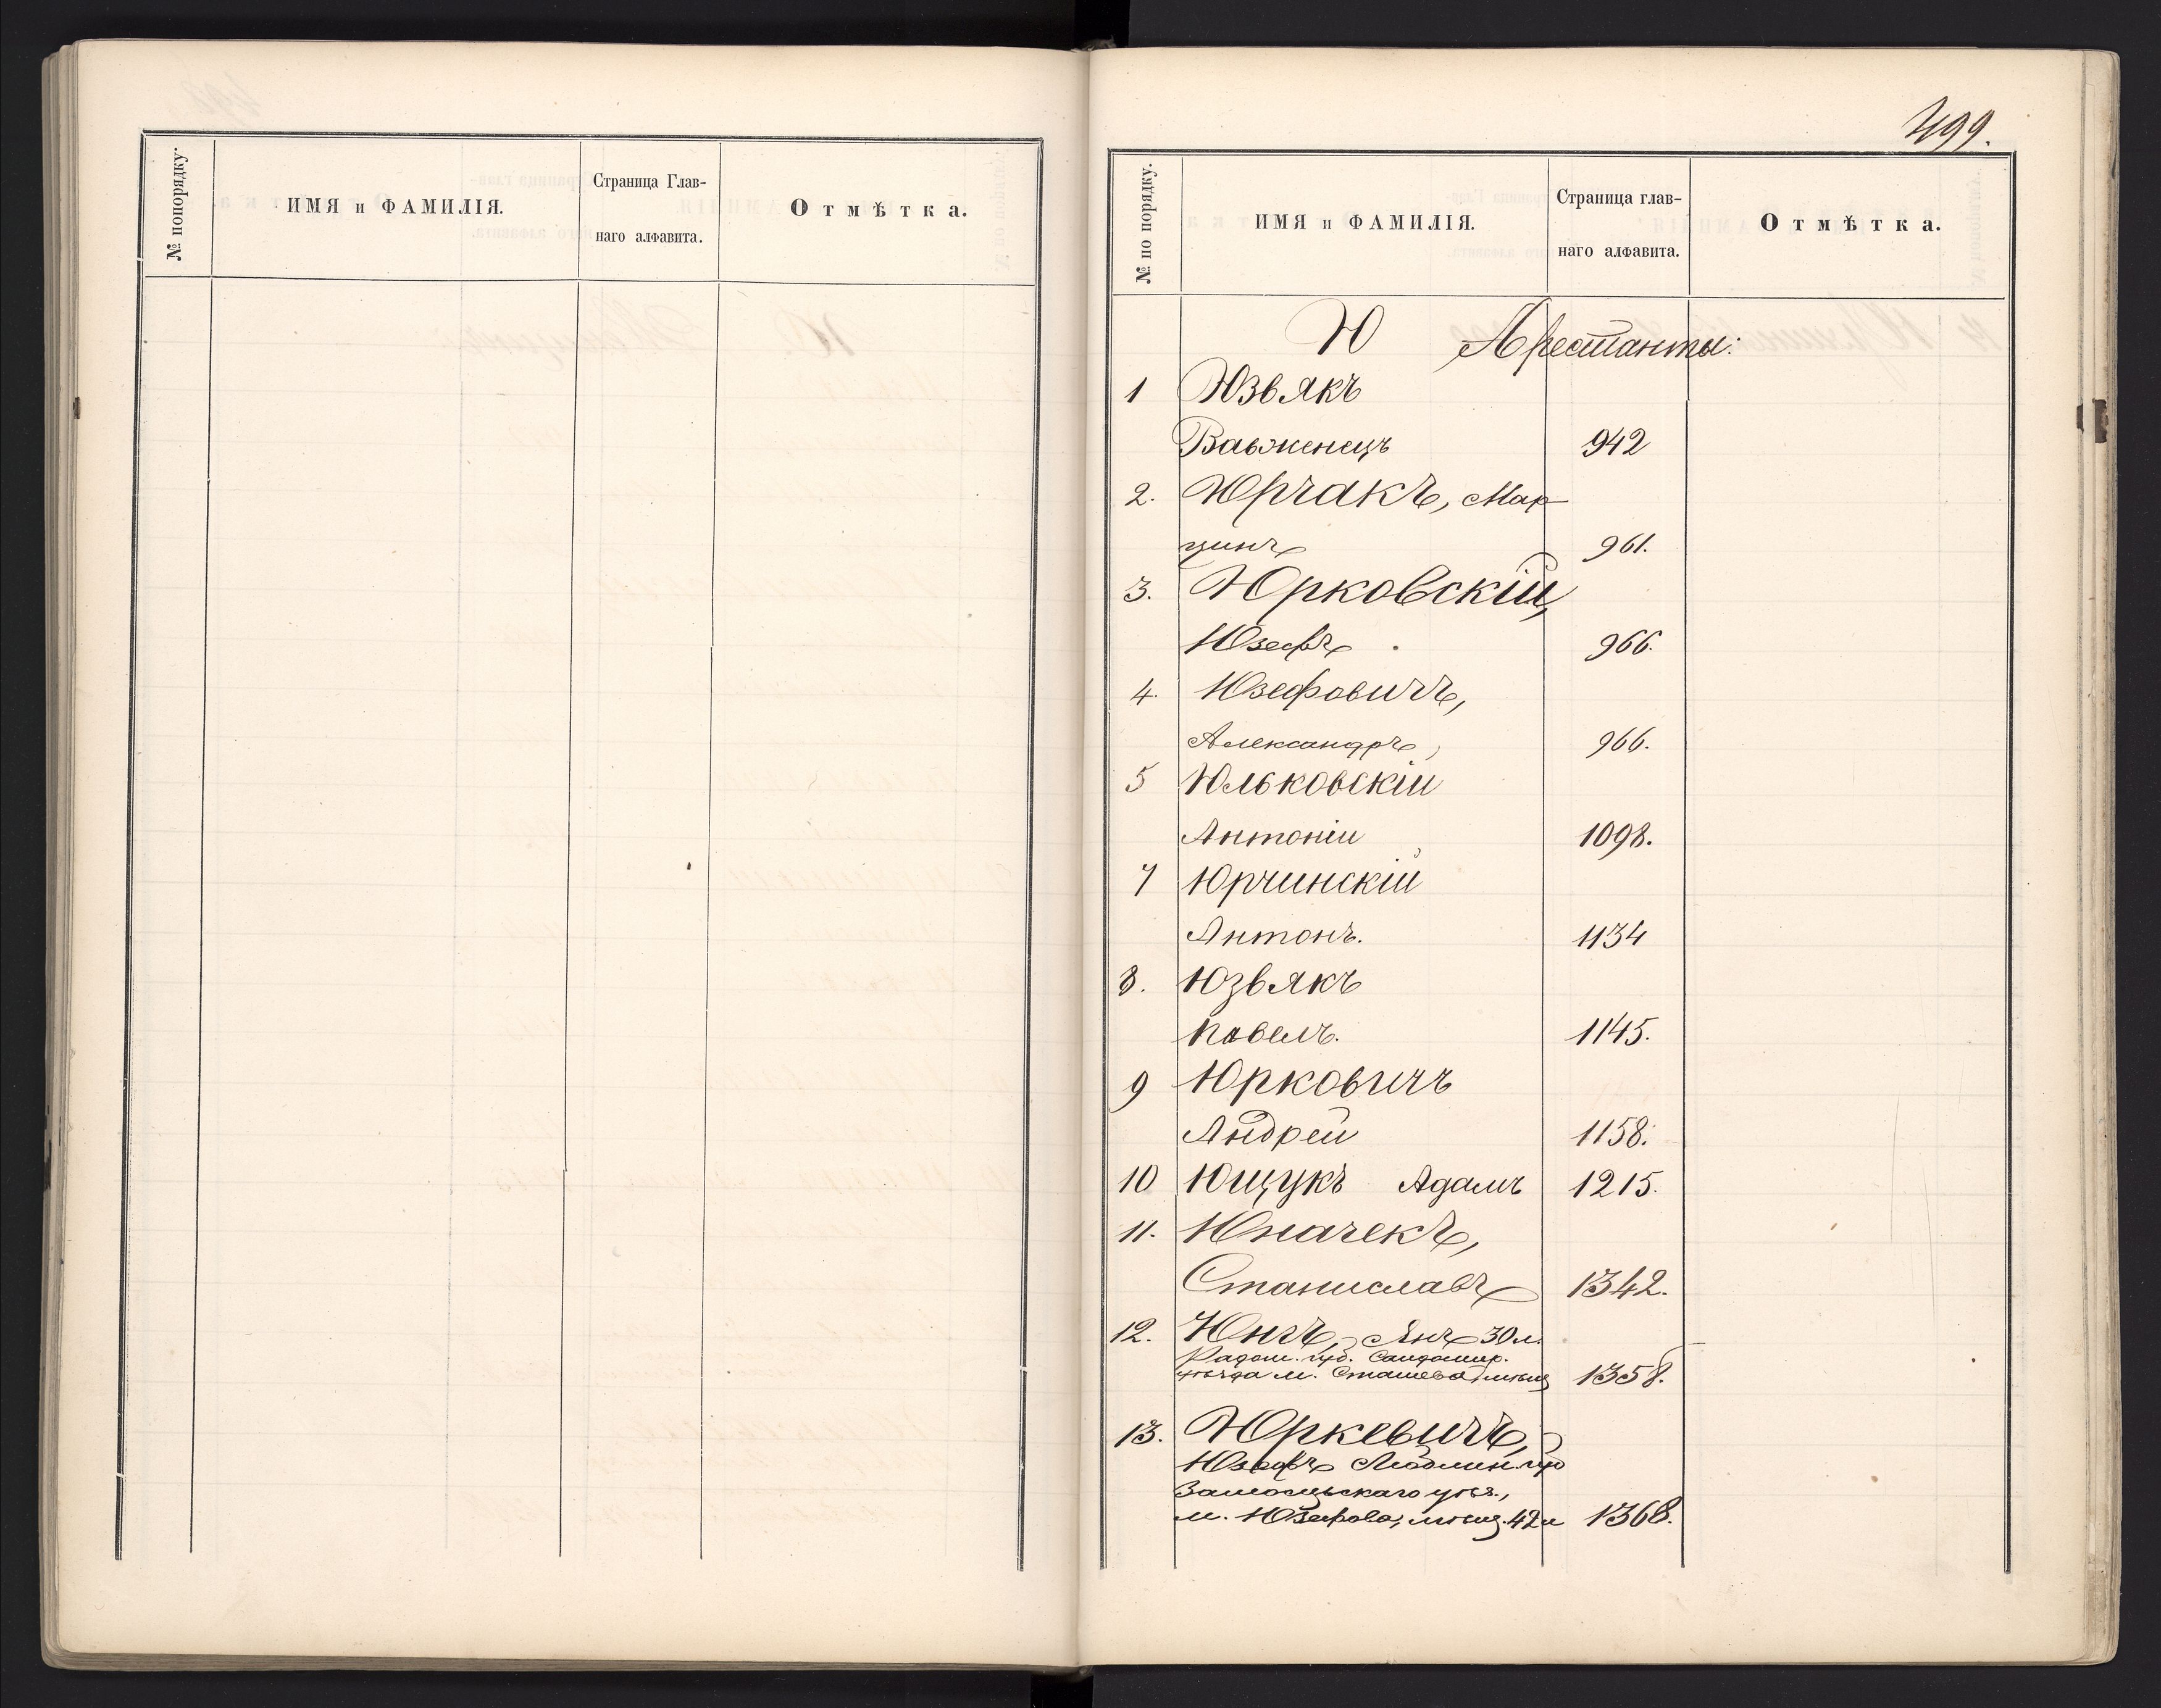 № попорядку.
ИМЯ и ФАМИЛІЯ.
Страница Глав-
наго алфавита.
Отмѣтка.
499.
№ по порядку.
ИМЯ и ФАМИЛІЯ.
Страница глав-
наго алфавита.
Отмѣтка.
Ю Арестанты:
1 Юзвякъ
Вавженецъ 942
2. Юрчакъ, Мар-
цинъ 961.
3. Юрковскій,
Юзефъ 966.
4. Юзефовичъ,
Александръ, 966.
5 Юльковскіи
Антоніи 1098.
7 Юрчинскій
Антонъ. 1134
8. Юзвякъ
Павелъ. 1145.
9 Юрковичъ
Андрей 1158.
10 Ющукъ Адамъ 1215.
11. Юначекъ,
Станиславъ 1342.
12. Юнгъ, Янъ 30 л.
Радом. губ. Сандомир.
уѣзда м. Сташева мѣщ 1358.
13. Юркевичъ,
Юзефъ Люблин. губ
Замосцьскаго уѣз.,
м. Юзефова, мѣщ. 42 л 1368.